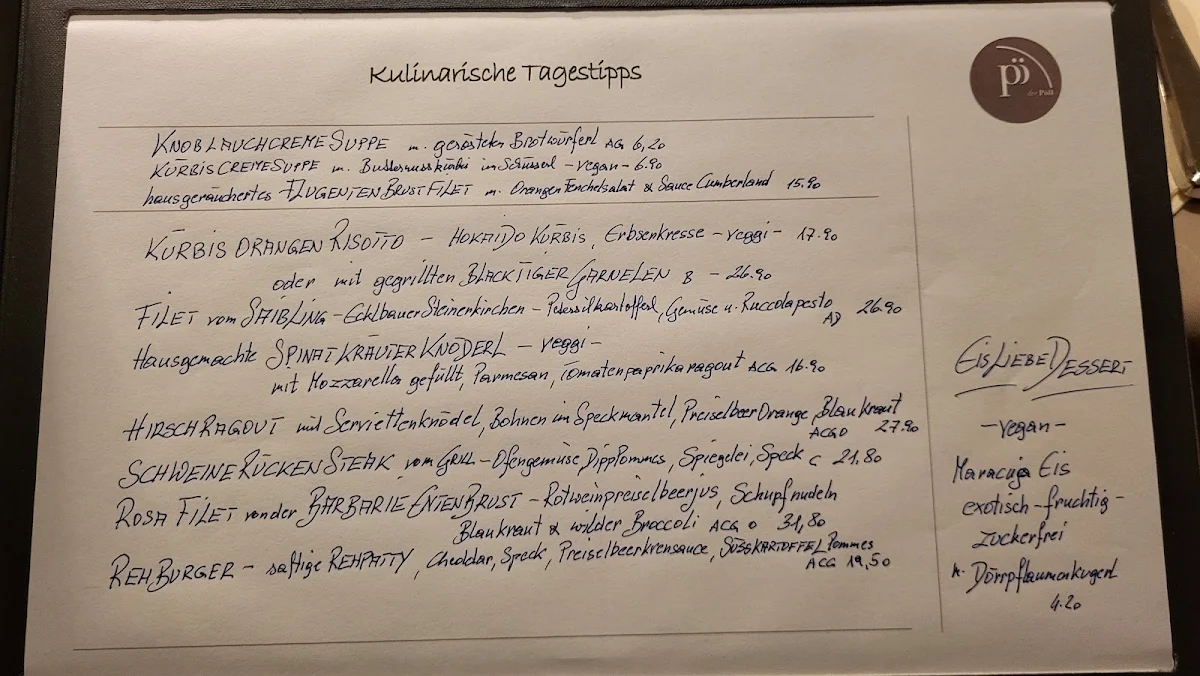 Kulinarische Tagestipps
pö
der Pöll
KNOBLAUCHCREMESUPPE m. gerösteten Brotwürferl AG 6,20
KÜRBISCREMESUPPE m. Butternusskürbis im Schüsserl - vegan - 6.90
hausgeräuchertes FLUGENTENBRUSTFILET m. OrangenFenchelsalat & Sauce Cumberland 15.90
KÜRBIS ORANGEN RISOTTO - HOKAIDO KÜRBIS, Erbsenkresse - veggi - 17.90
oder mit gegrillten BLACKTIGER GARNELEN B - 26.90
FILET vom SAIBLING - Ecklbauer Steinerkirchen - Petersilkartofferl, Gemüse u. Ruccolapesto
AD 26.90
Hausgemachte SPINATKRÄUTERKNÖDERL - veggi -
mit Mozzarella gefüllt, Parmesan, Tomatenpaprikaragout ACG 16.90
HIRSCHRAGOUT mit Serviettenknödel, Bohnen im Speckmantel, PreiselbeerOrange, Blaukraut
ACGO 27.90
SCHWEINERÜCKENSTEAK vom GRILL - Ofengemüse, DippPommes, Spiegelei, Speck C 21,80
ROSA FILET von der BARBARIE ENTENBRUST - Rotweinpreiselbeerjus, Schupfnudeln
Blaukraut & wilder Broccoli ACG O 31,80
REHBURGER - saftige REHPATTY, Cheddar, Speck, Preiselbeerkrensauce, SÜSSKARTOFFEL Pommes
ACG 19,50
EISLIEBEDESSERT
- vegan -
Maracuja Eis
exotisch - fruchtig -
zuckerfrei
Dörrpflaumenkugerl
4.20